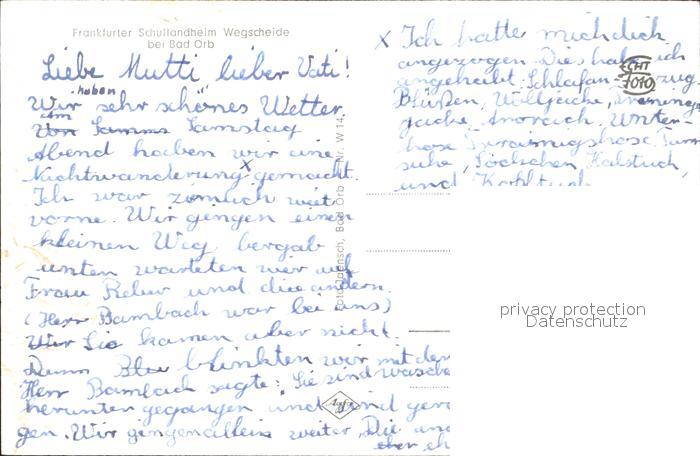 Frankfurter Schullandheim Wegscheide
bei Bad Orb
Liebe Mutti lieber Vati!
Wir haben sehr schönes Wetter.
Am Samstag
Abend haben wir eine
Nachtwanderung x gemacht.
Ich war zimlich weit
vorne. Wir gingen einen
kleinen Weg bergab
unten warteten wir auf
Frau Reber und die andern.
(Herr Bambach war bei uns)
Sie kamen aber nicht.
Dann blinkten wir mit den
Herr Bambach sagte: Sie sind
herunter gegangen und sind
gen. Wir gingen allein weiter. Die
aber
x Ich hatte mich dick
angezogen. Dies habe ich
angehabt. Schlafanzug.
Blußen, Wolljacke, Trainings
jacke, Anorack. Unter-
hose Trainingshose. Turn
suhe, Söckchen Halstuch,
und Kopftuch
Foto Jaensch, Bad Orb Nr. W 14
Agfa
privacy protection
Datenschutz